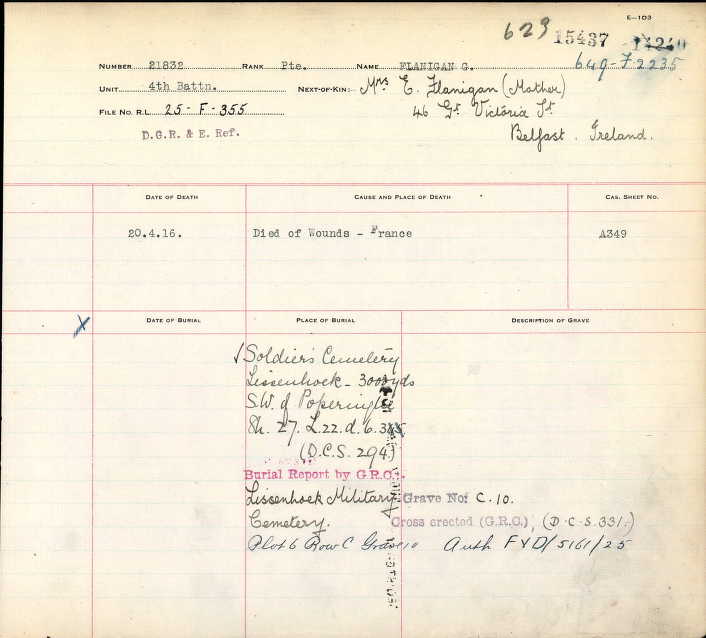 E—103
629 15437 14240
649-F2235
NUMBER 21832 RANK Pte. NAME FLANIGAN G.
UNIT 4th Battn. NEXT-OF-KIN: Mrs E. Flanigan (Mother)
FILE NO. R.L. 25-F-355 46 Gt Victoria St.
D.G.R. & E. Ref. Belfast. Ireland.
DATE OF DEATH CAUSE AND PLACE OF DEATH CAS. SHEET NO.
20.4.16. Died of Wounds - France A349
X DATE OF BURIAL PLACE OF BURIAL DESCRIPTION OF GRAVE
✓ Soldiers Cemetery
Lissenhoek - 3000 yds
S.W. of Poperinghe
Sh. 27. L.22.d.6.3
(D.C.S. 294.)
Burial Report by G.R.C.
Lissenhoek Military Grave No: C.10.
Cemetery. Cross erected (G.R.C.) (D.C.S. 331.)
Plot 6 Row C Grave 10 Auth FYD/5161/25